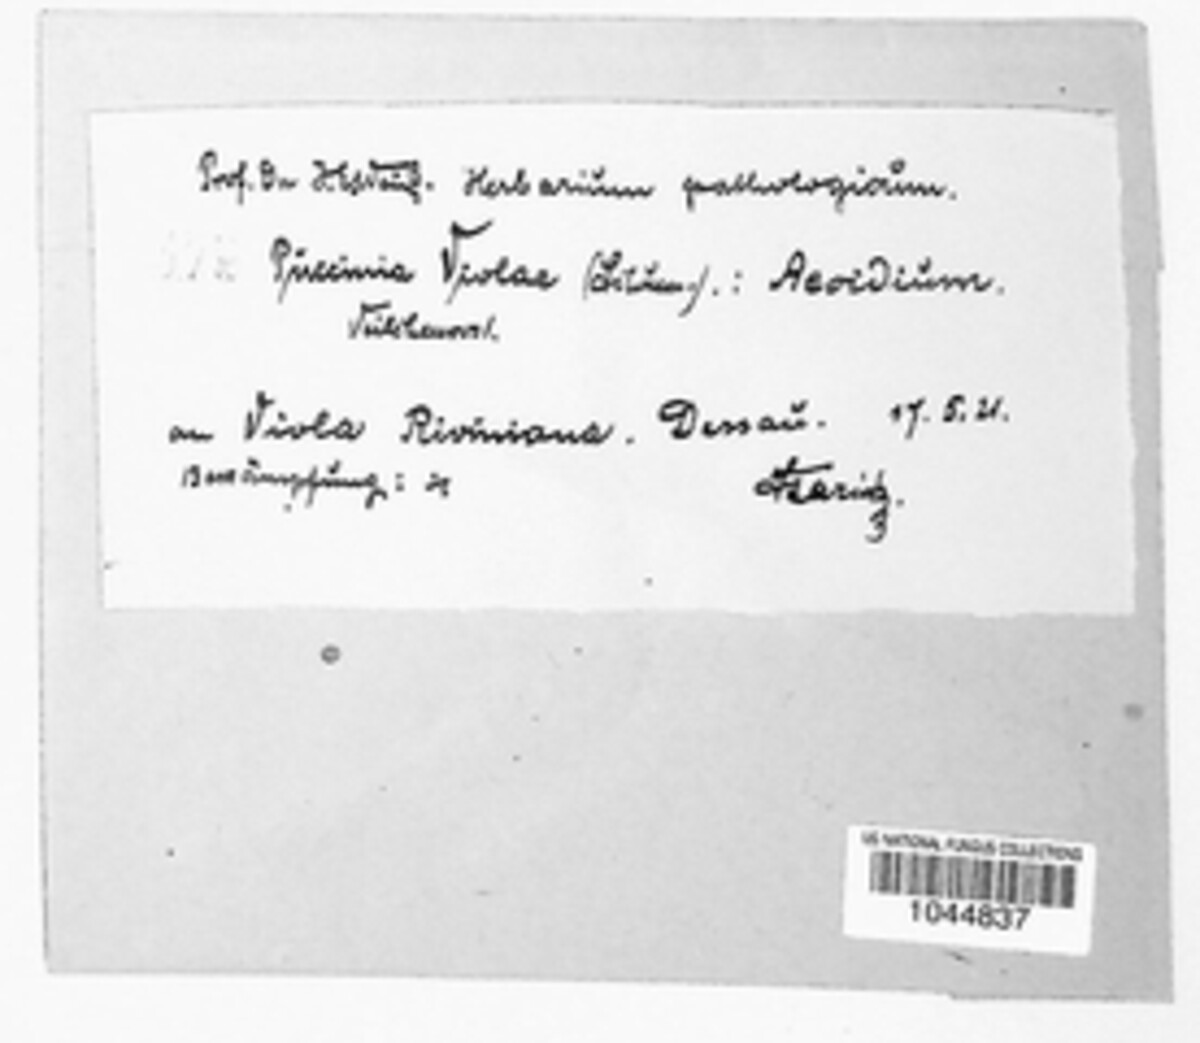 Prof. Dr Herbarium pathologicum.
Puccinia Violae (Schum.).: Aecidium.
Veilchenrost.
an Viola Riviniana. Dessau. 17. 5. 21.
Bekämpfung:
Staritz.
US NATIONAL FUNGUS COLLECTIONS
1044837